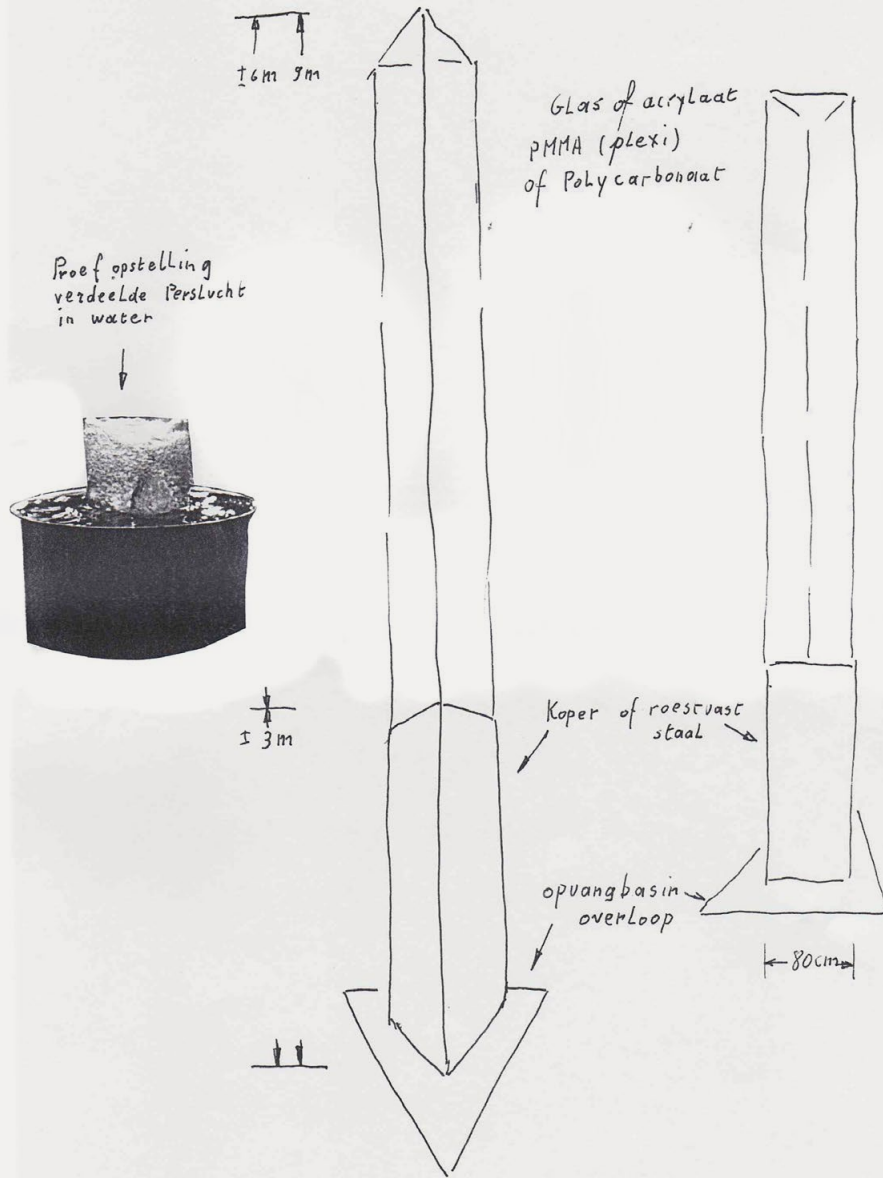 ±6m 9m
Glas of acrylaat
PMMA (plexi)
of Polycarbonaat
Proef opstelling
verdeelde Perslucht
in water
± 3m
Koper of roestvast
staal
opvangbasin
overloop
80cm